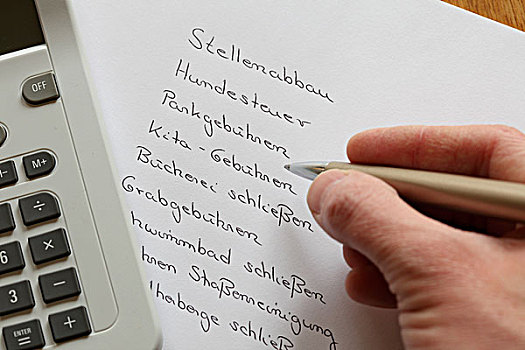 Stellenabbau
Hundesteuer
Parkgebühren
Kita - Gebühren
Bücherei schließen
Grabgebühren
hwimmbad schließen
hren Staßenreinigung
lherberge schließ
OFF
M+
÷
×
6
3
-
ENTER
=
+